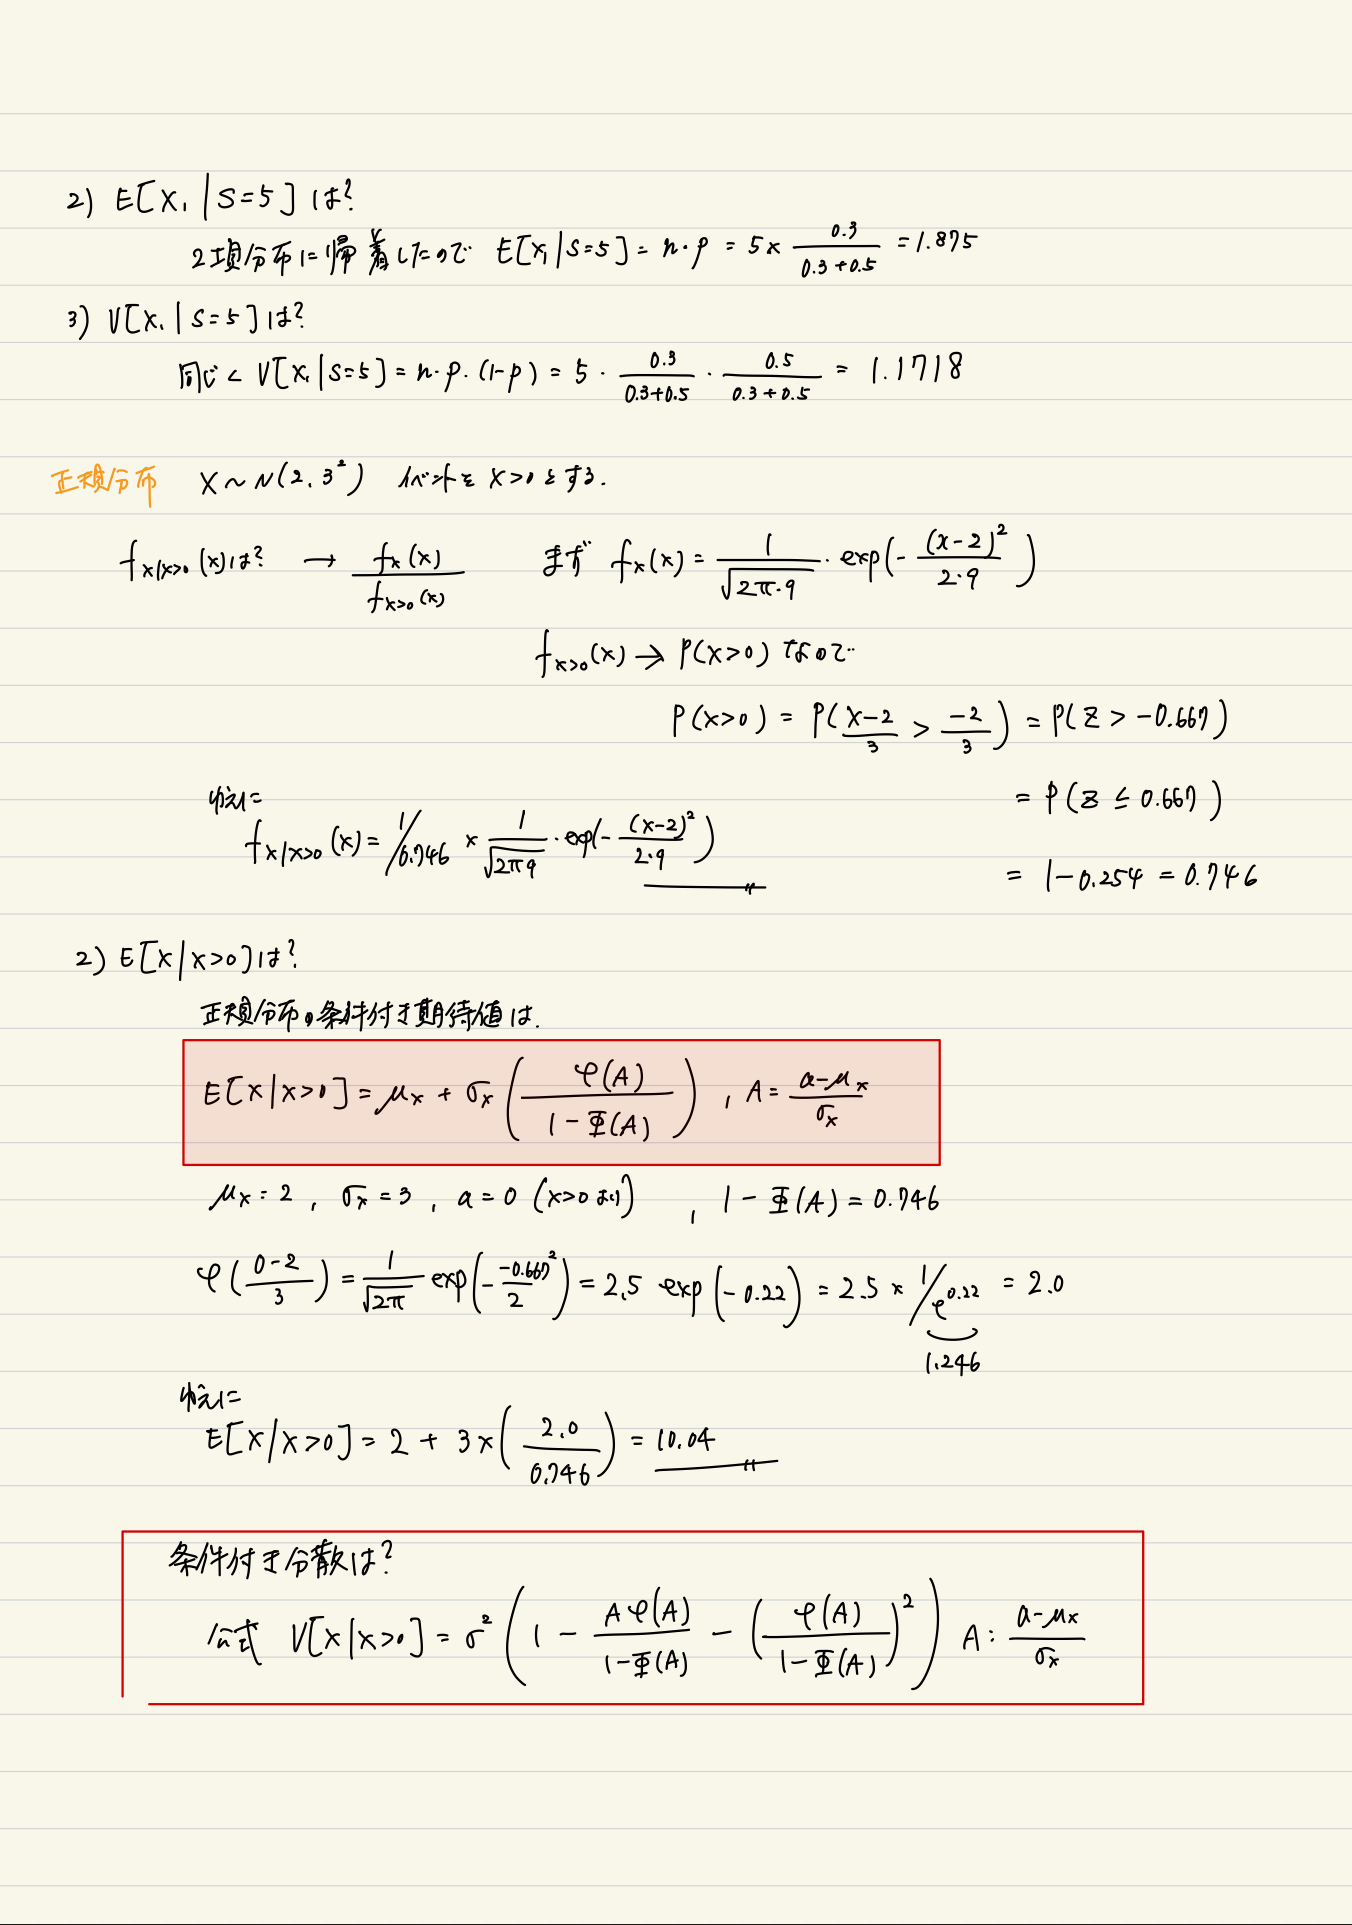 2) E[X₁|S=5]は?
2項分布に帰着したので E[X₁|S=5] = n・p = 5× 0.3/(0.3+0.5) = 1.875
3) V[X₁|S=5]は?
同じく V[X₁|S=5] = n・p・(1-p) = 5・0.3/(0.3+0.5)・0.5/(0.3+0.5) = 1.1718
正規分布 X～N(2, 3²) イベントを X>0 とする.
f_{X|X>0}(x)は? → f_X(x)/f_{X>0}(x) まず f_X(x) = 1/√(2π・9)・exp(-(x-2)²/(2・9))
f_{X>0}(x) → P(X>0) なので
P(X>0) = P((X-2)/3 > -2/3) = P(Z > -0.667)
= P(Z ≤ 0.667)
= 1-0.254 = 0.746
ゆえに
f_{X|X>0}(x) = 1/0.746 × 1/√(2π9)・exp(-(x-2)²/(2・9))
2) E[X|X>0]は?
正規分布の条件付き期待値は.
E[X|X>0] = μx + σx(φ(A)/(1-Φ(A))) , A = (a-μx)/σx
μx = 2 , σx = 3 , a = 0 (x>0より) , 1-Φ(A) = 0.746
φ((0-2)/3) = 1/√(2π) exp(- -0.667²/2) = 2.5 exp(-0.22) = 2.5 × 1/e^0.22 = 2.0
1.246
ゆえに
E[X|X>0] = 2 + 3×(2.0/0.746) = 10.04
条件付き分散は?
公式 V[X|X>0] = σ²(1 - Aφ(A)/(1-Φ(A)) - (φ(A)/(1-Φ(A)))²) A: (a-μx)/σx